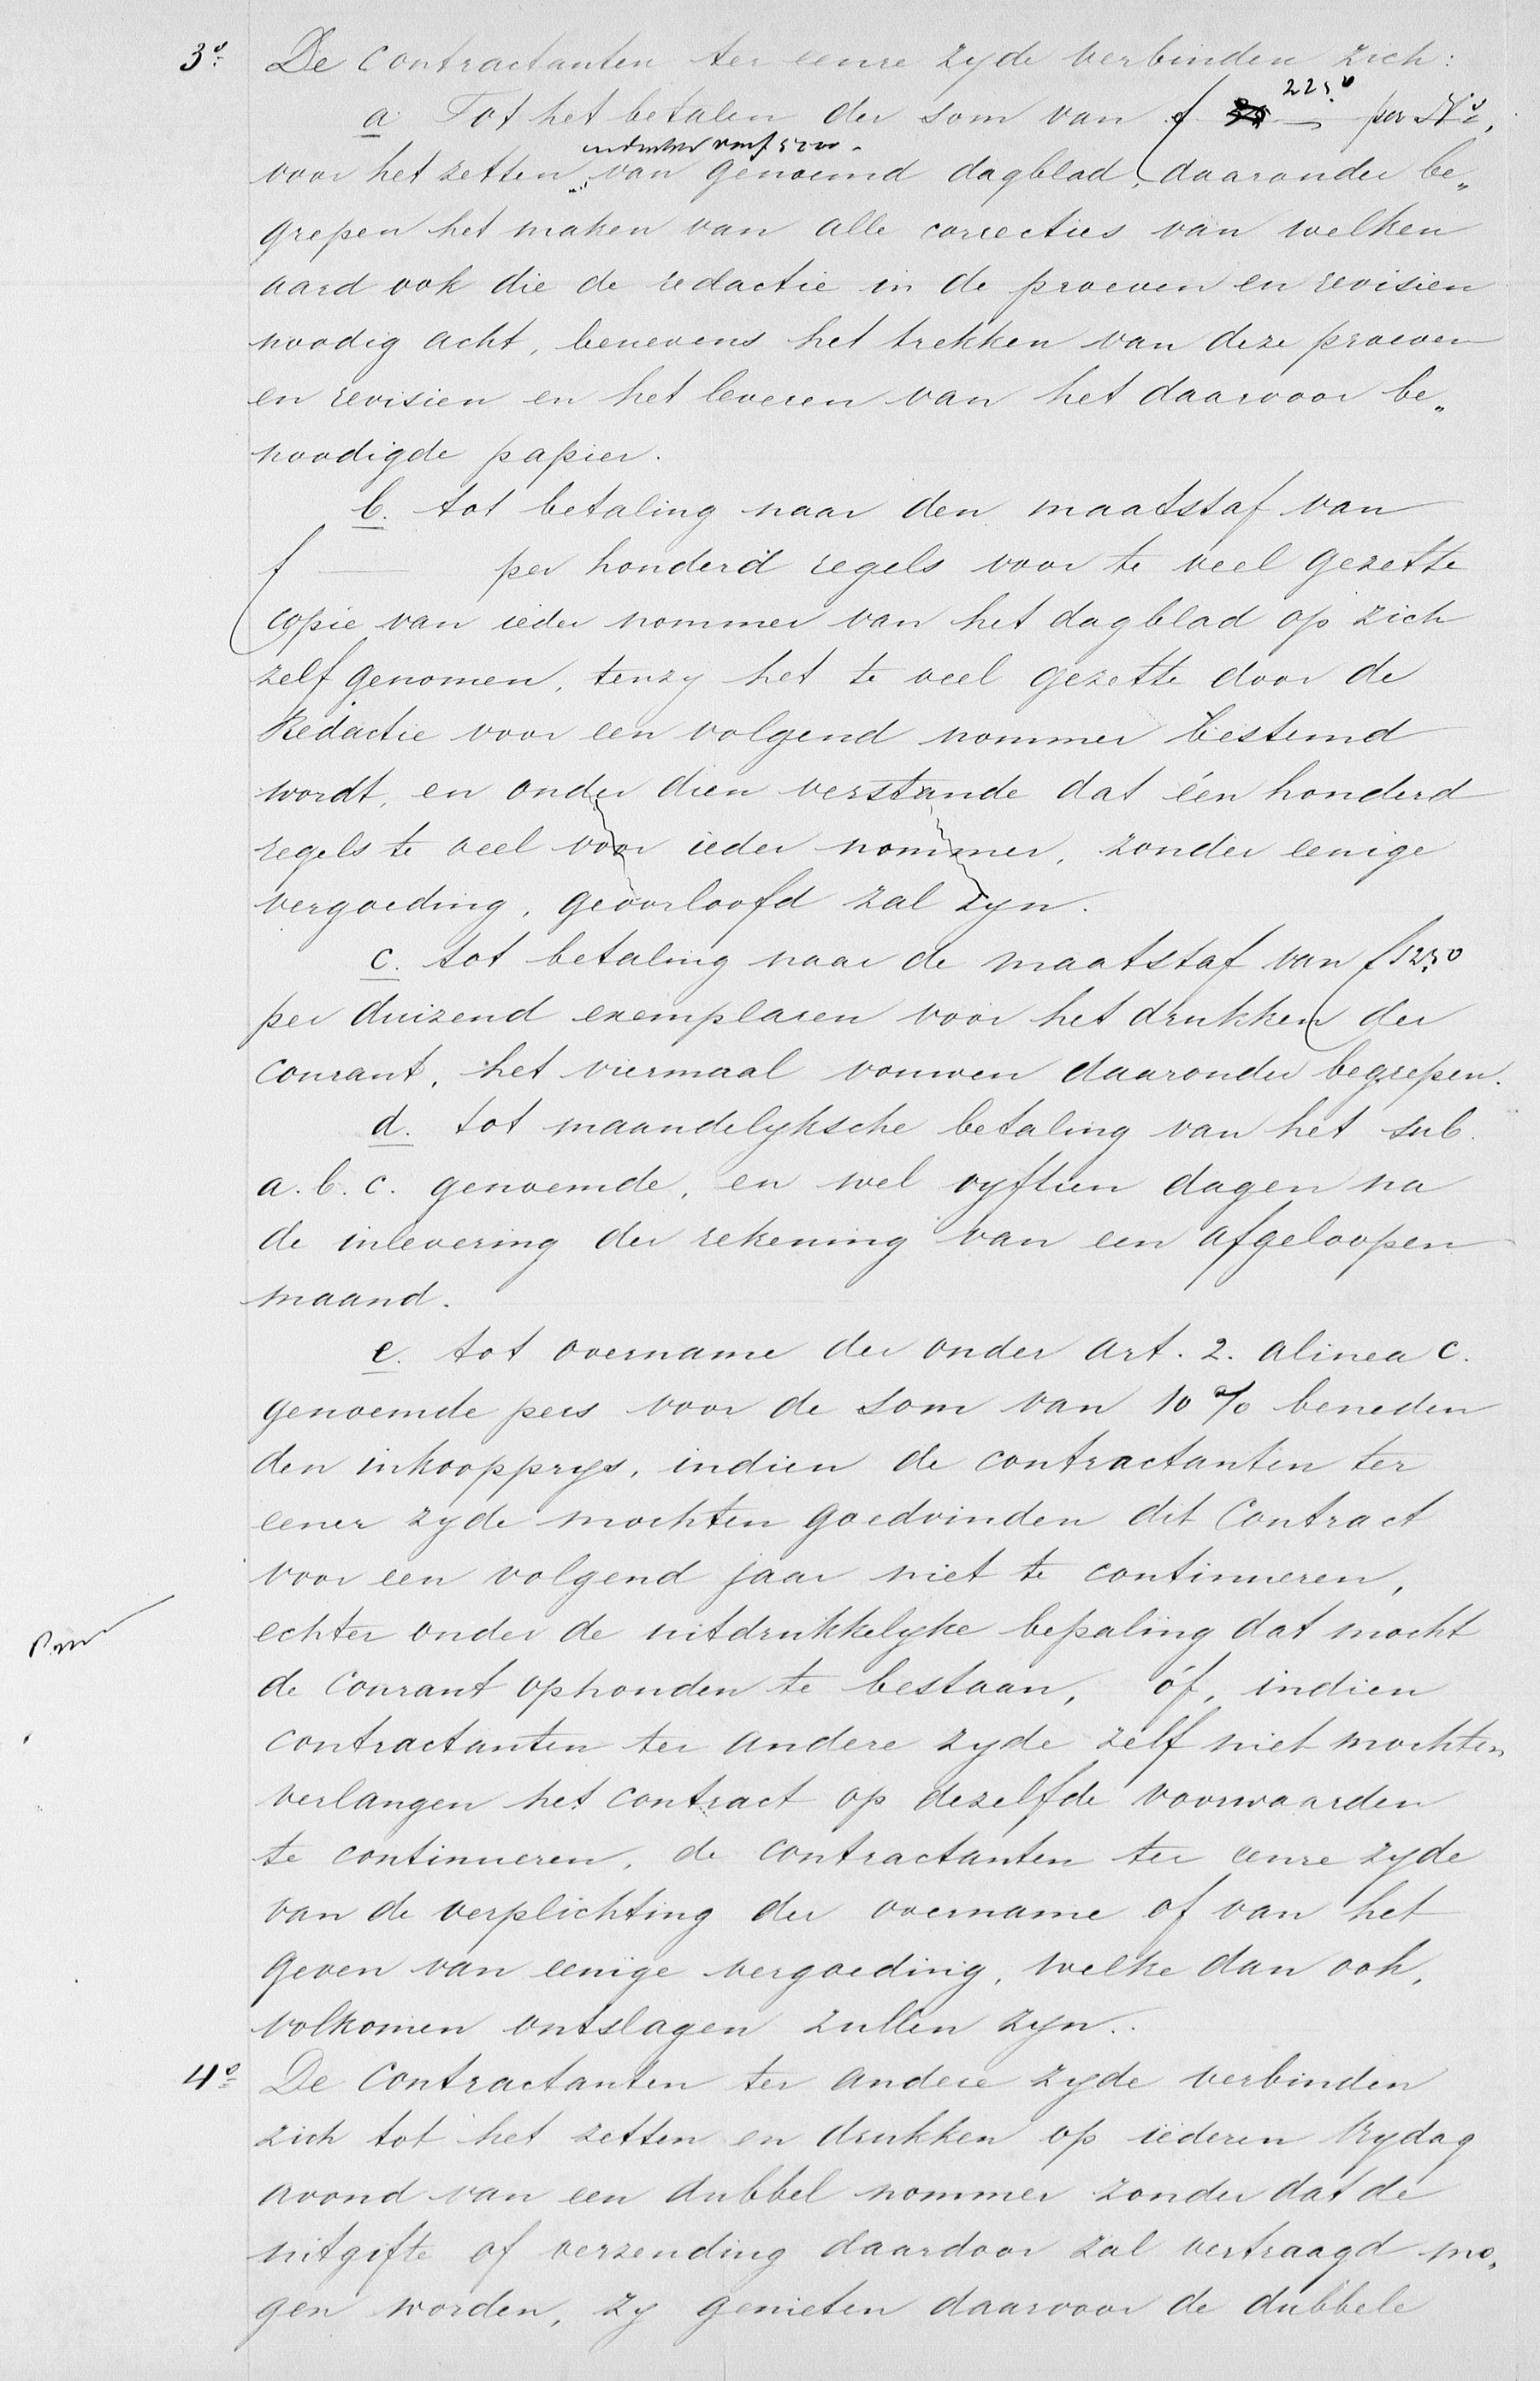 3o. De contractanten ter eenre zyde verbinden zich:
a. Tot het betalen der som van f 22.50 per No.,
voor het zetten van genoemd dagblad, daaronder be„
grepen het maken van alle correcties van welken
aard ook die de redactie in de proeven en revisien
noodig acht, benevens het trekken van deze proeven
en revisien en het leveren van het daarvoor be„
noodigde papier.
b. tot betaling naar den maatstaf van
f — per honderd regels voor te veel gezette
copie van ieder nommer van het dagblad op zich
zelf genomen, tenzy het te veel gezette door de
Redactie voor een volgend nommer bestemd
wordt, en onder dien verstande dat één honderd
regels te veel voor ieder nommer, zonder eenige
vergoeding, geoorloofd zal zyn.
c. tot betaling naar de maatstaf van f 12.50
per duizend exemplaren voor het drukken der
courant, het viermaal vouwen daaronder begrepen.
d. tot maandelyksche betaling van het sub.
a. b. c. genoemde, en wel vyftien dagen na
de inlevering der rekening van een afgeloopen
maand.
e. tot overname der onder art. 2. alinea c.
genoemde pers voor de som van 10 % beneden
den inkoopprys, indien de contractanten ter
eener zyde mochten goedvinden dit Contract
voor een volgend jaar niet te continueren,
echter onder de uitdrukkelyke bepaling dat mocht
de Courant ophouden te bestaan, óf, indien
contractanten ter andere zyde zelf niet mochten
verlangen het contract op dezelfde voorwaarden
te continueren, de contractanten ter eenre zyde
van de verplichting der overname of van het
geven van eenige vergoeding, welke dan ook,
volkomen ontslagen zullen zyn.
4o. De Contractanten ter andere zyde verbinden
zich tot het zetten en drukken op iederen Vrydag
avond van een dubbel nommer zonder dat de
uitgifte of verzending daardoor zal vertraagd mo„
gen worden, zy genieten daarvoor de dubbele